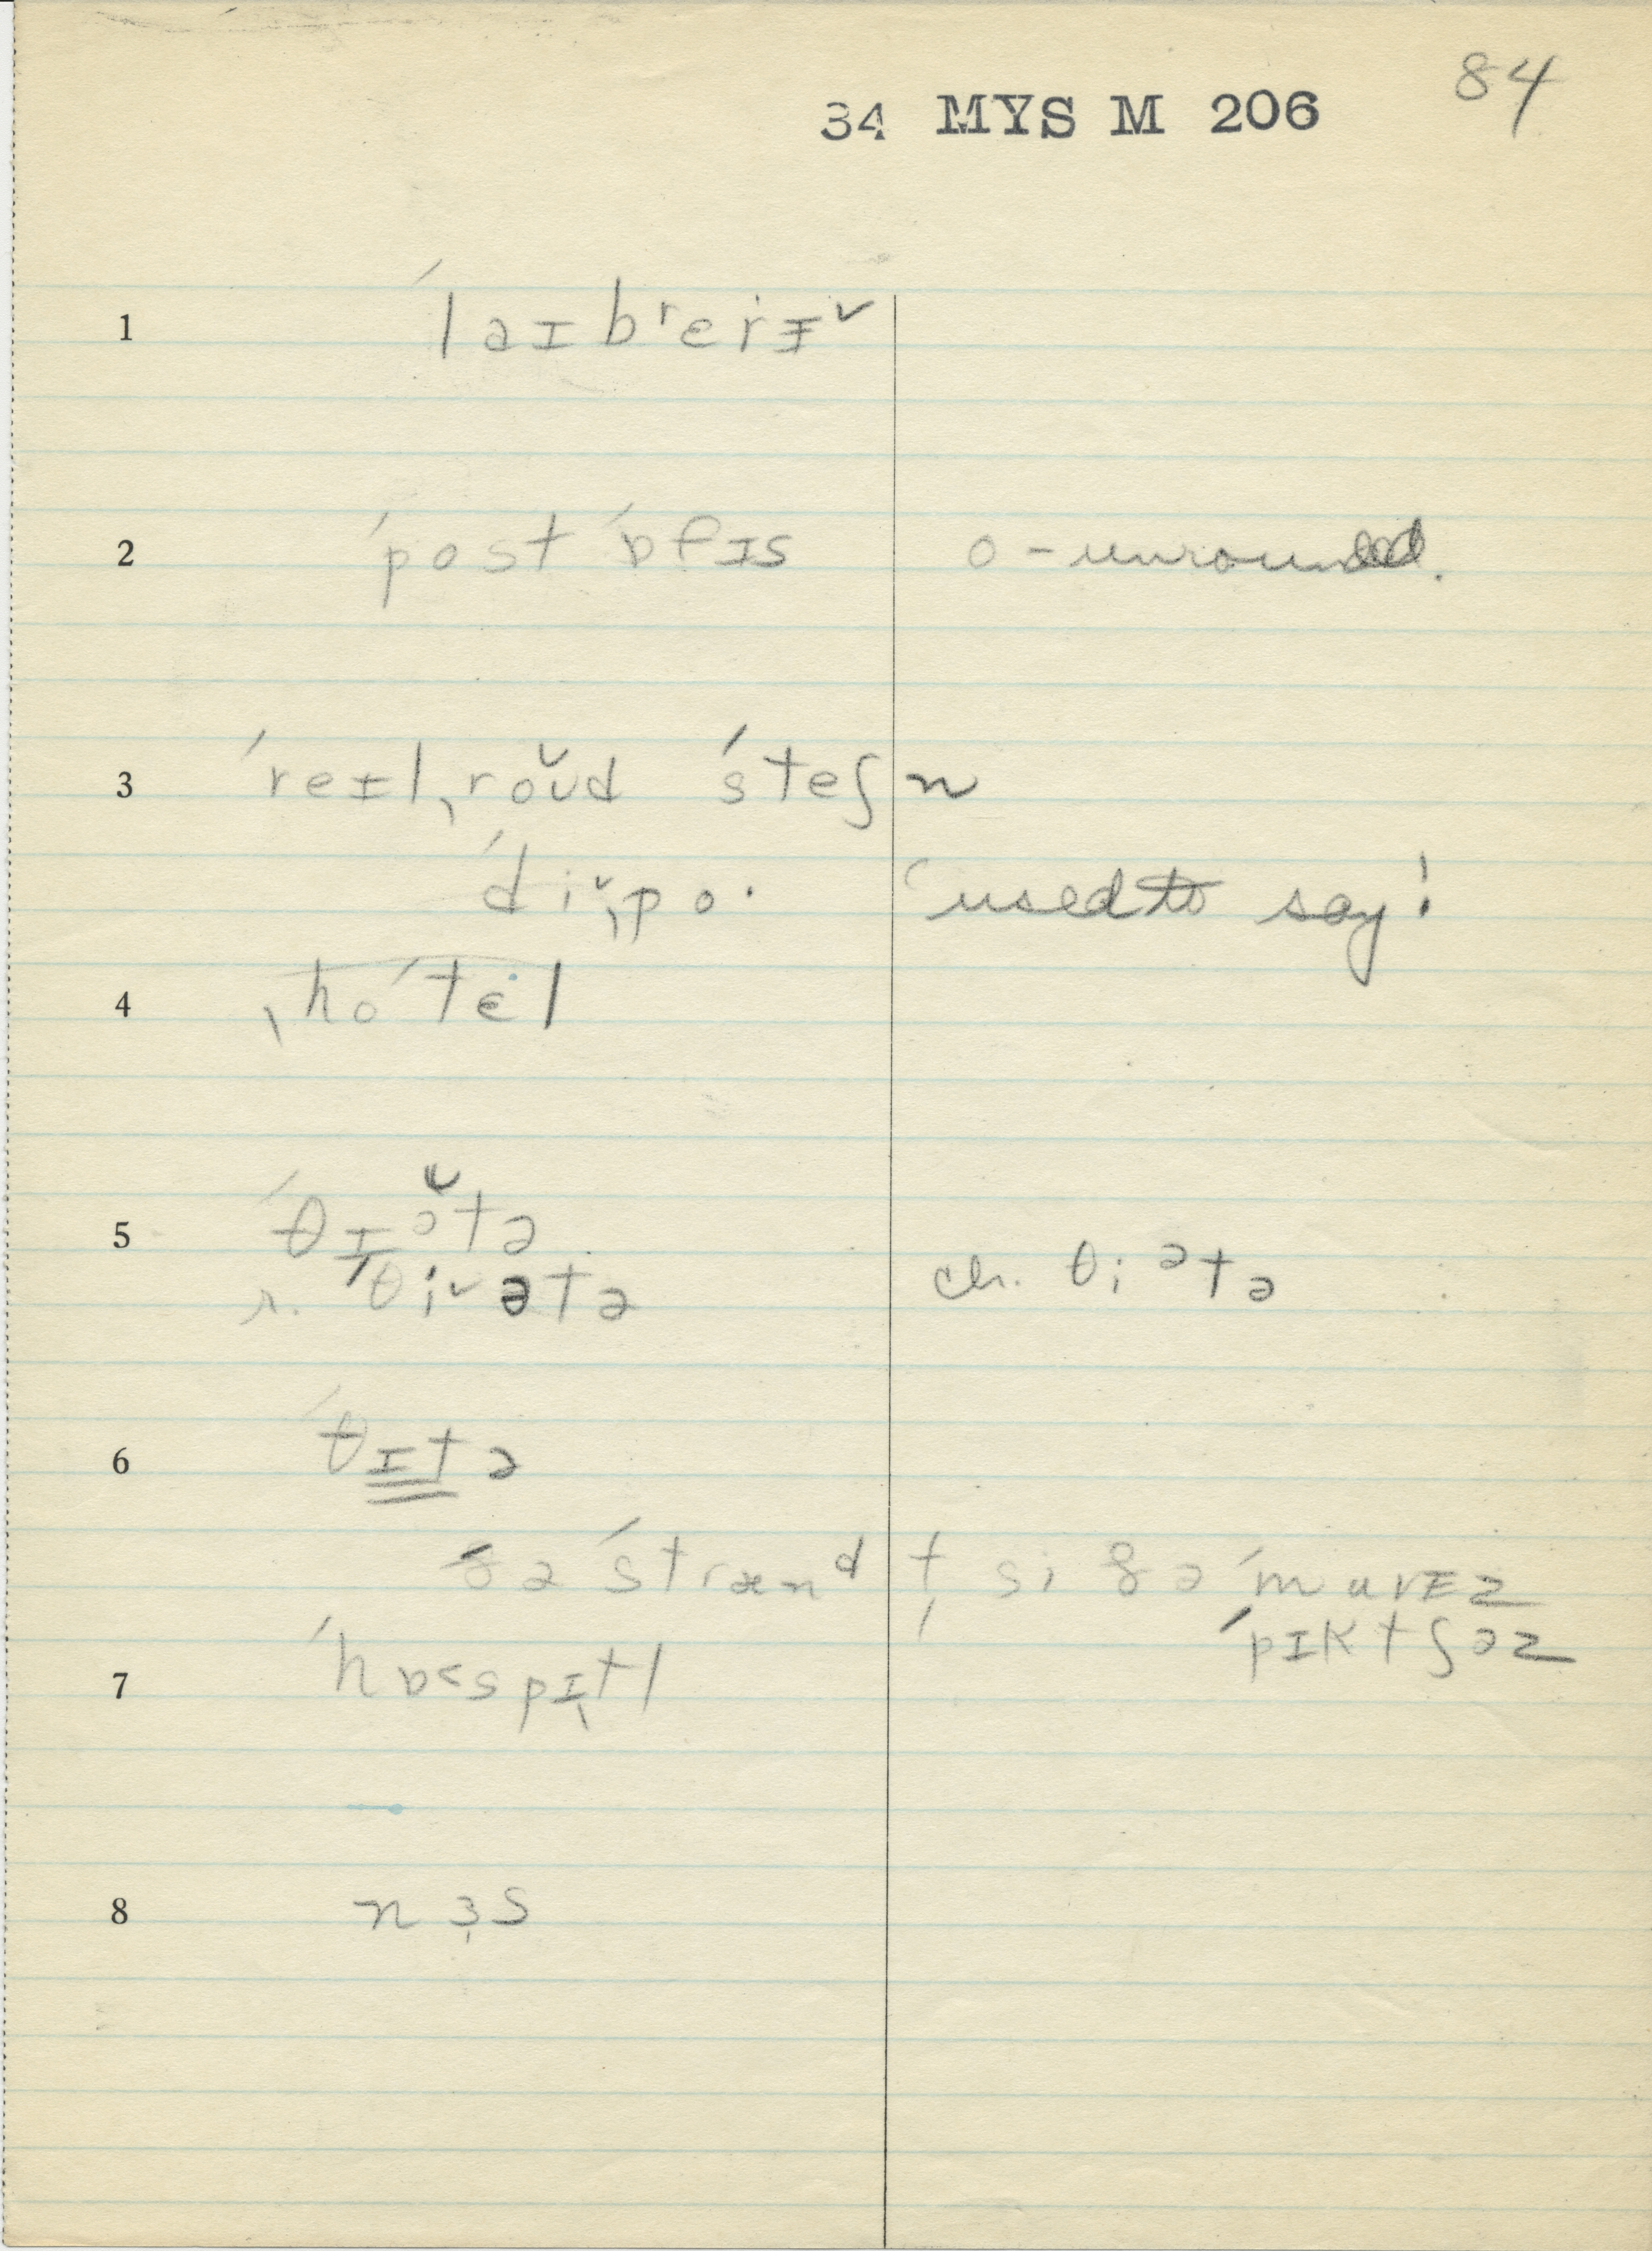 84
34 MYS M 206
1 ˈlaɪbʳerɪ̵ˇ
2 ˈpost ˈɒfɪs o - unrounded.
3 ˈreɪlˌroŭd ˈsteʃn
ˈdiˇˌpo· 'used to say!
4 ˌhoˈtɛl
5 ˈθɪə̆tə
r. ˈθiˇətə ch. θiᵊtə
6 ˈθɪtə
ðə ˈstrænᵈ t̩ si ðə ˈmuvɪz
ˈpɪktʃəz
7 ˈhɒ˂spɪtl
8 nɜs